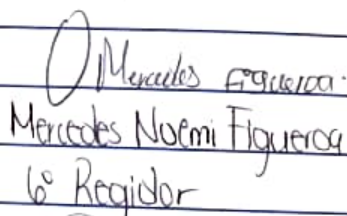 Mercedes Figueroa.
Mercedes Noemi Figueroa
6º Regidor